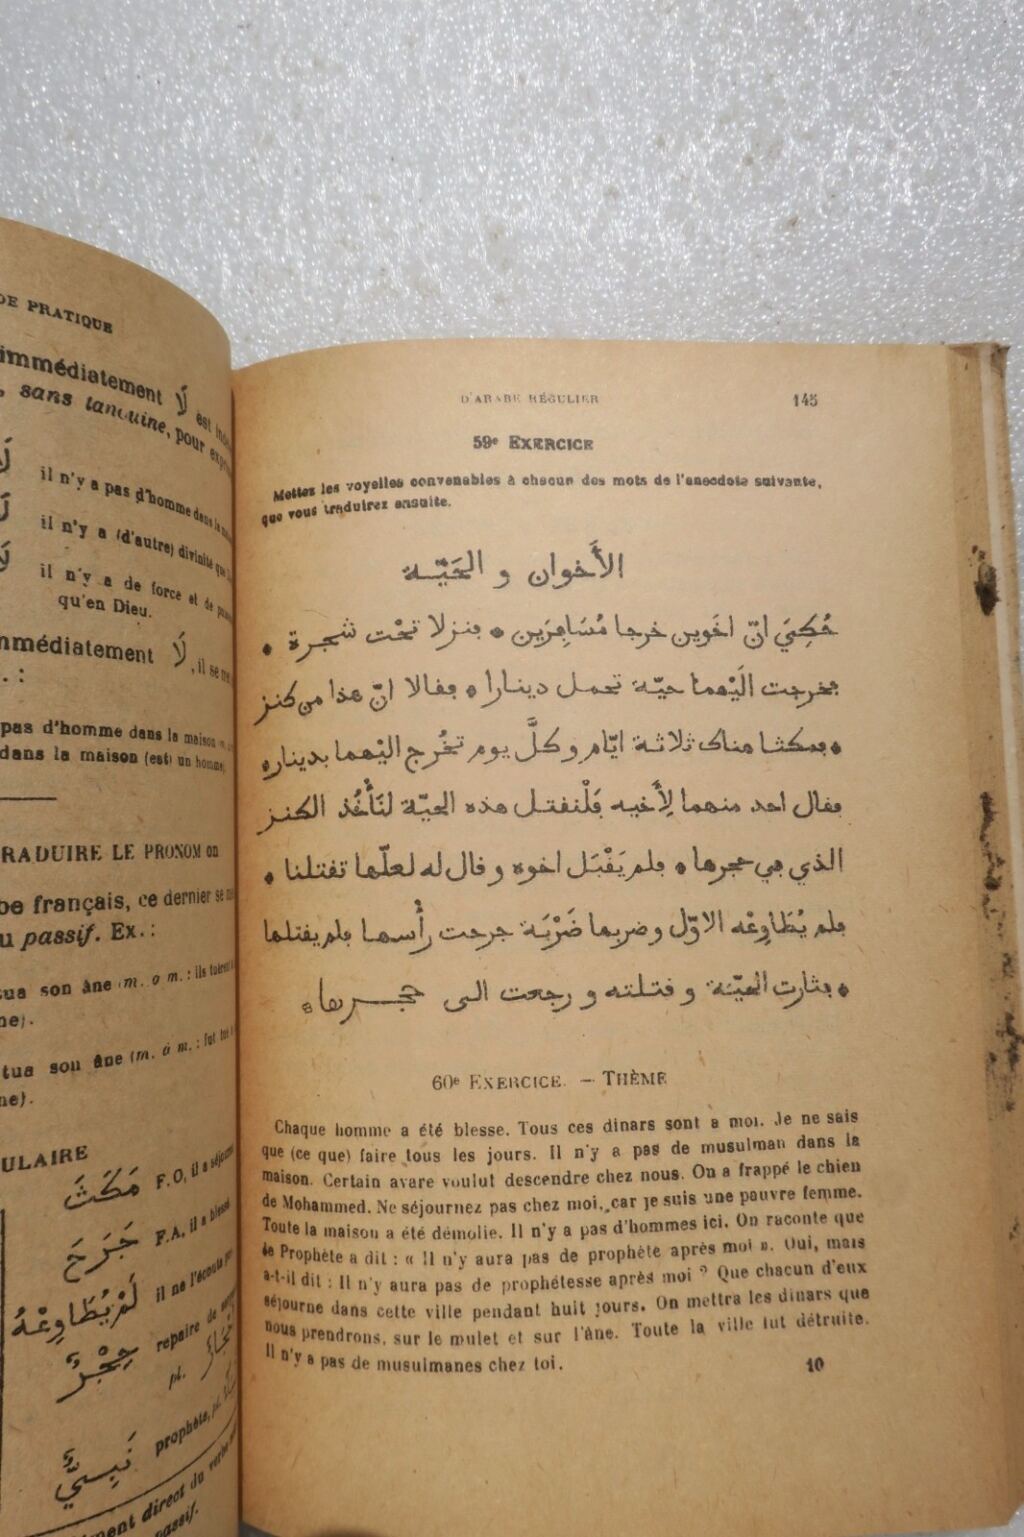 DE PRATIQUE
immédiatement لَا est
sans tanouine, pour
il n'y a pas d'homme dans la
il n'y a (d'autre) divinité que
il n'y a de force et de
qu'en Dieu.
immédiatement لَا, il se
pas d'homme dans la maison
dans la maison (est) un homme
RADUIRE LE PRONOM on
be français, ce dernier se
u passif. Ex. :
tua son âne (m. à m. : ils
ne).
tua son âne (m. à m. : fut
ne).
ULAIRE
مَكَثَ F. O, il a
جَرَحَ F. A, il a blessé
لَمْ يُطَاوِعْهُ il ne l'écouta
جُحْرٌ repaire de
pl.
نَبِيٌّ prophète, pl.
ment direct du verbe
passif.
D'ARABE RÉGULIER 145
59e EXERCICE
Mettez les voyelles convenables à chacun des mots de l'anecdote suivante,
que vous traduirez ensuite.
الأَخوان و الحَيّة
حُكِيَ انّ اخَوين خرجا مُسَافِرَين • ڢنزلا تحْت شجرة •
ڢخرجت الَيْهما حيّة تحمل دينارا • ڢفالا انّ هذا من كنز
• ڢمكثا هناك ثلاثة ايّام وكلَّ يوم تخُرج اليْهما بدينار •
ڢفال احد منهما لِأَخيه ڢَلْنفتل هذه الحيّة لنَأْخُذ الكنز
الذي ڢي جحرها • ڢلم يَفْبَل اخوه و فال له لعلّها تفتلنا •
ڢلم يُطَاوِعْه الاوّل و ضربها ضَرْبَة جرحت رأْسها ڢلم يفتلها
• ڢثارت الحيّة و فتلته و رجعت الى جحرها •
60e EXERCICE. — THÈME
Chaque homme a été blesse. Tous ces dinars sont a moi. Je ne sais
que (ce que) faire tous les jours. Il n'y a pas de musulman dans la
maison. Certain avare voulut descendre chez nous. On a frappé le chien
de Mohammed. Ne séjournez pas chez moi, car je suis une pauvre femme.
Toute la maison a été démolie. Il n'y a pas d'hommes ici. On raconte que
le Prophète a dit : « Il n'y aura pas de prophète après moi ». Oui, mais
a-t-il dit : Il n'y aura pas de prophétesse après moi ? Que chacun d'eux
séjourne dans cette ville pendant huit jours. On mettra les dinars que
nous prendrons, sur le mulet et sur l'âne. Toute la ville fut détruite.
Il n'y a pas de musulmanes chez toi.
10